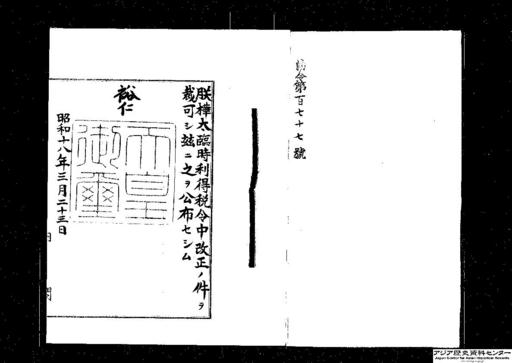 勅令第百七十七號
朕樺太臨時利得税令中改正ノ件ヲ
裁可シ玆ニ之ヲ公布セシム
裕仁
天皇御璽
昭和十八年三月二十三日
アジア歴史資料センター
Japan Center for Asian Historical Records